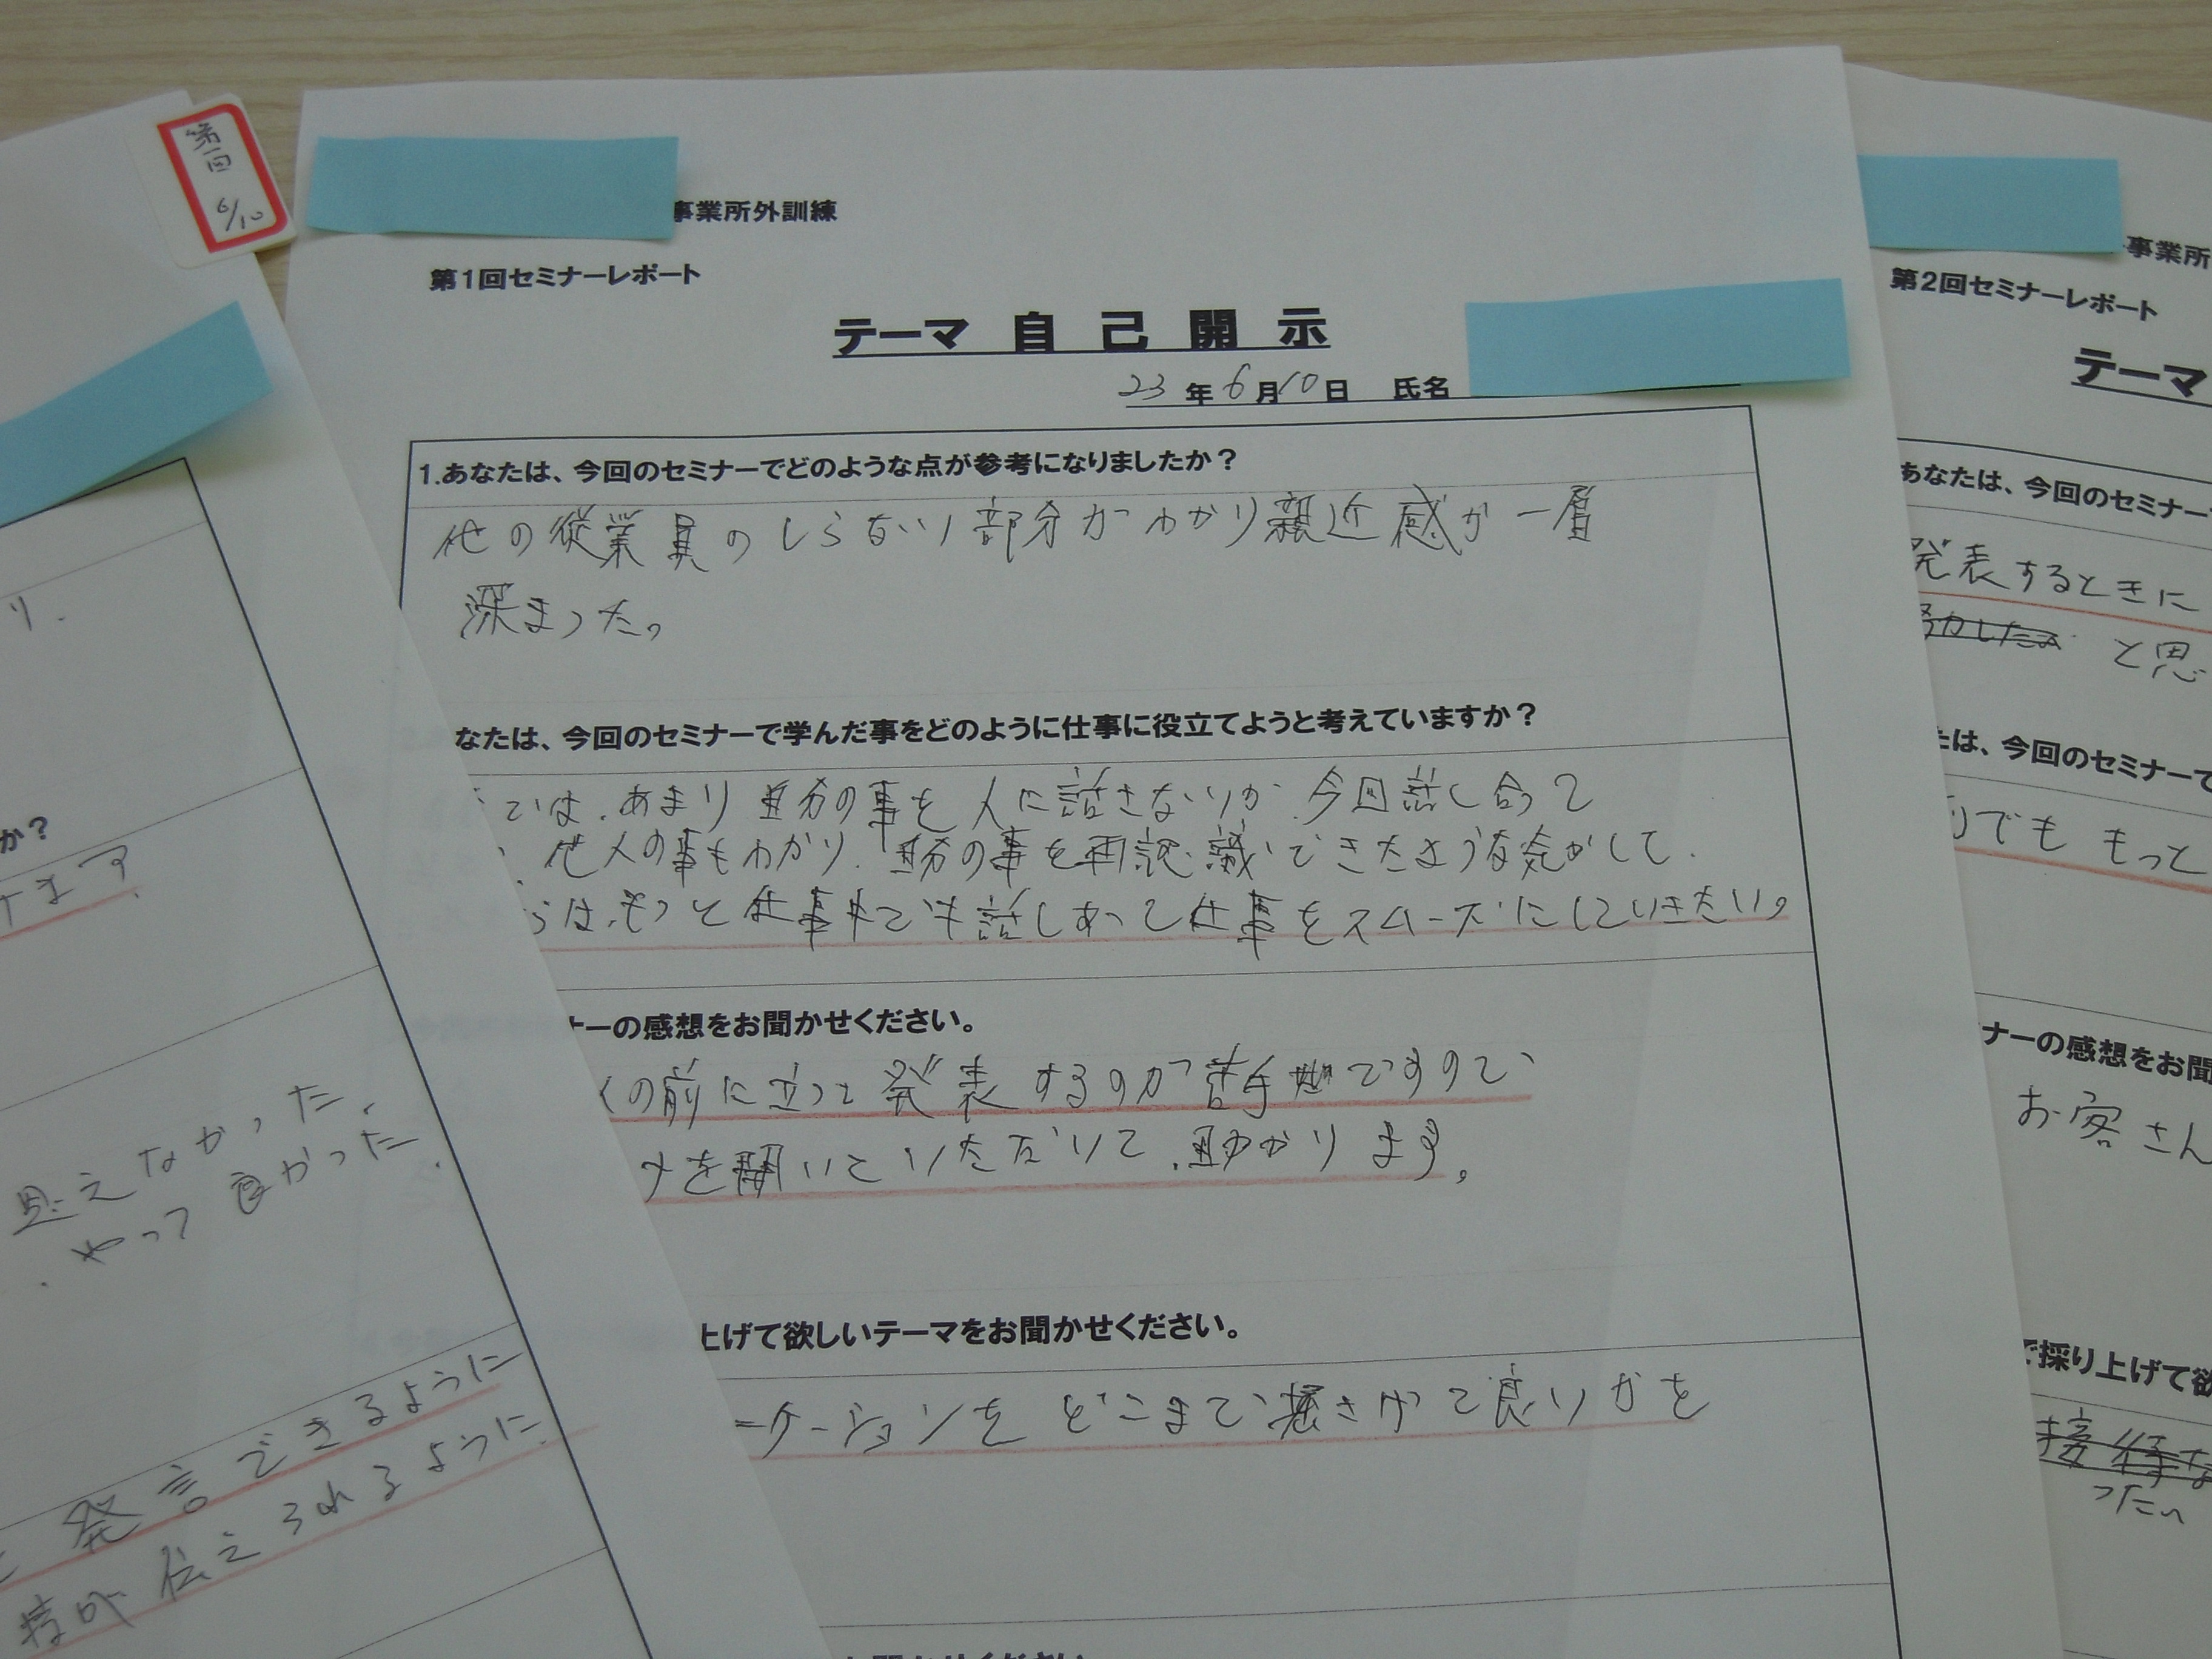 第一回
6/10
り.
か?
けます.
思えなかった.
やって良かった.
発言できるように
伝えられるように.
事業所外訓練
第1回セミナーレポート
テーマ 自 己 開 示
23年6月10日 氏名
1.あなたは、今回のセミナーでどのような点が参考になりましたか?
他の従業員のしらない部分がわかり親近感が一層
深まった。
なたは、今回のセミナーで学んだ事をどのように仕事に役立てようと考えていますか?
では、あまり自分の事を人に話さないが、今回話し合って
、他人の事もわかり、自分の事を再認識できたような気がして、
らは、もっと仕事中でも話しあって仕事をスムーズにしていきたい。
ナーの感想をお聞かせください。
の前に立って発表するのが苦手ですので
を開いていただいて、助かります。
上げて欲しいテーマをお聞かせください。
ニケーションをどこまで掘さげて良いかを
事業所
第2回セミナーレポート
テーマ
あなたは、今回のセミナー
発表するときに
と思
たは、今回のセミナーで
でも もっと
ナーの感想をお聞
お客さん
で採り上げて欲
接待な
ったい